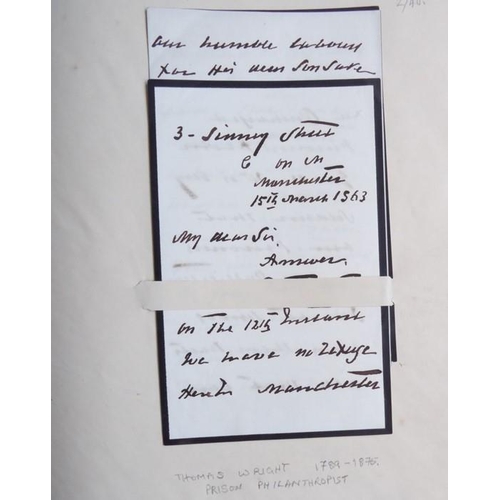 our humble labours
for His dear Son Sake
3 - Sinney Street
C on M
Manchester
15th March 1863
My dear Sir,
Answer
on the 12th Instant
We have no Refuge
Here in Manchester
THOMAS WRIGHT 1789-1875.
PRISON PHILANTHROPIST